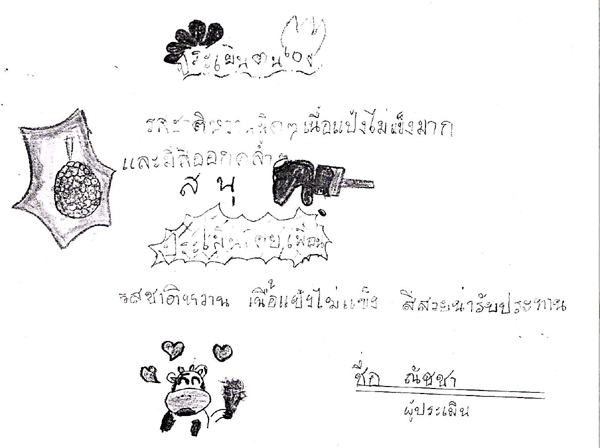 ประเมินตนเอง
รสชาติหวานนิดๆ เนื้อแป้งไม่แข็งมาก
และมีสีออกคล้ำๆ
สนุ
ประเมินโดยเพื่อน
รสชาติหวาน เนื้อแป้งไม่แข็ง สีสวยน่ารับประทาน
ชื่อ ณัชชา
ผู้ประเมิน